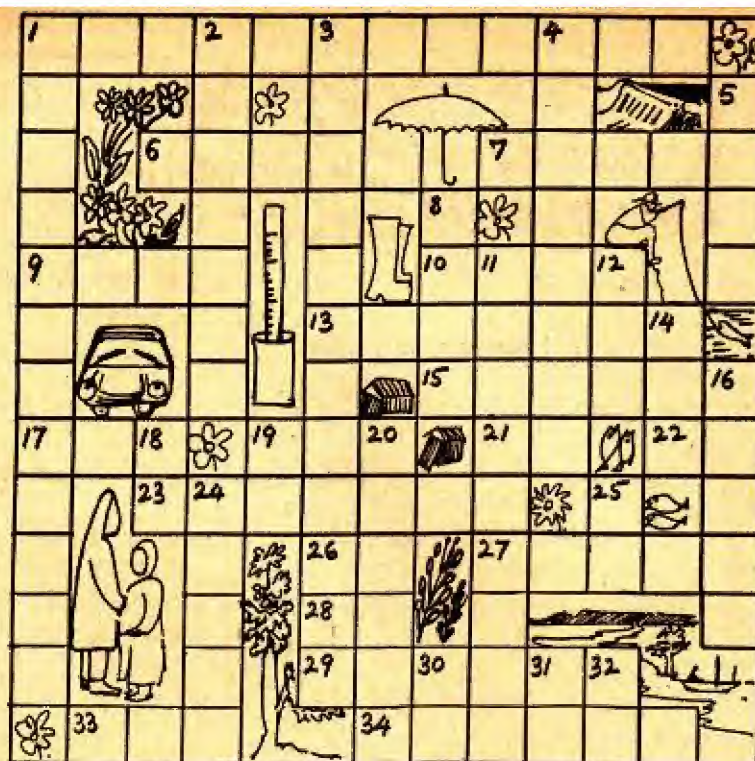 1 2 3 4
5
6 7
8
9 10 11 12
13 14
15 16
17 18 19 20 21 22
23 24 25
26 27
28
29 30 31 32
33 34